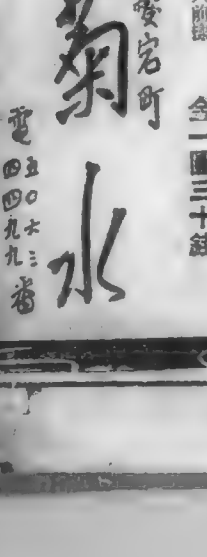 全一圓三十錢
愛宕町
菊水
電 五〇六三
四四九九 番